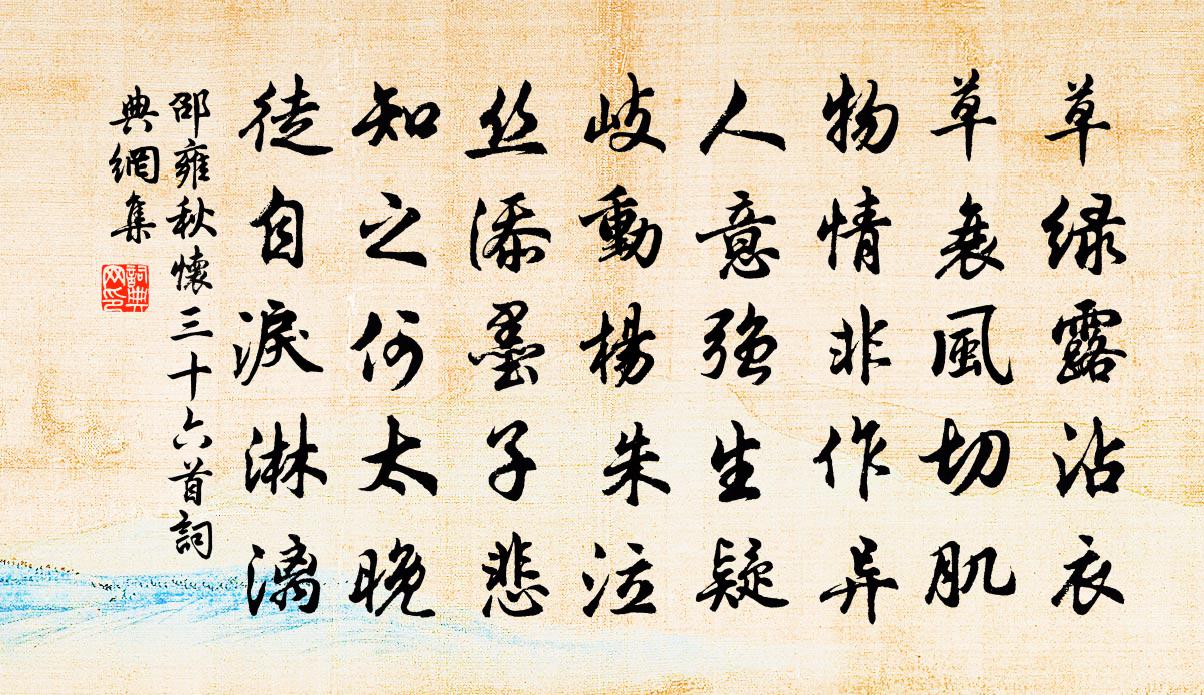 草绿露沾衣
草衰風切肌
物情非作异
人意强生疑
岐動楊朱泣
丝添墨子悲
知之何太晚
徒自淚淋漓
邵雍秋懷三十六首詞
典網集
詞典
网印